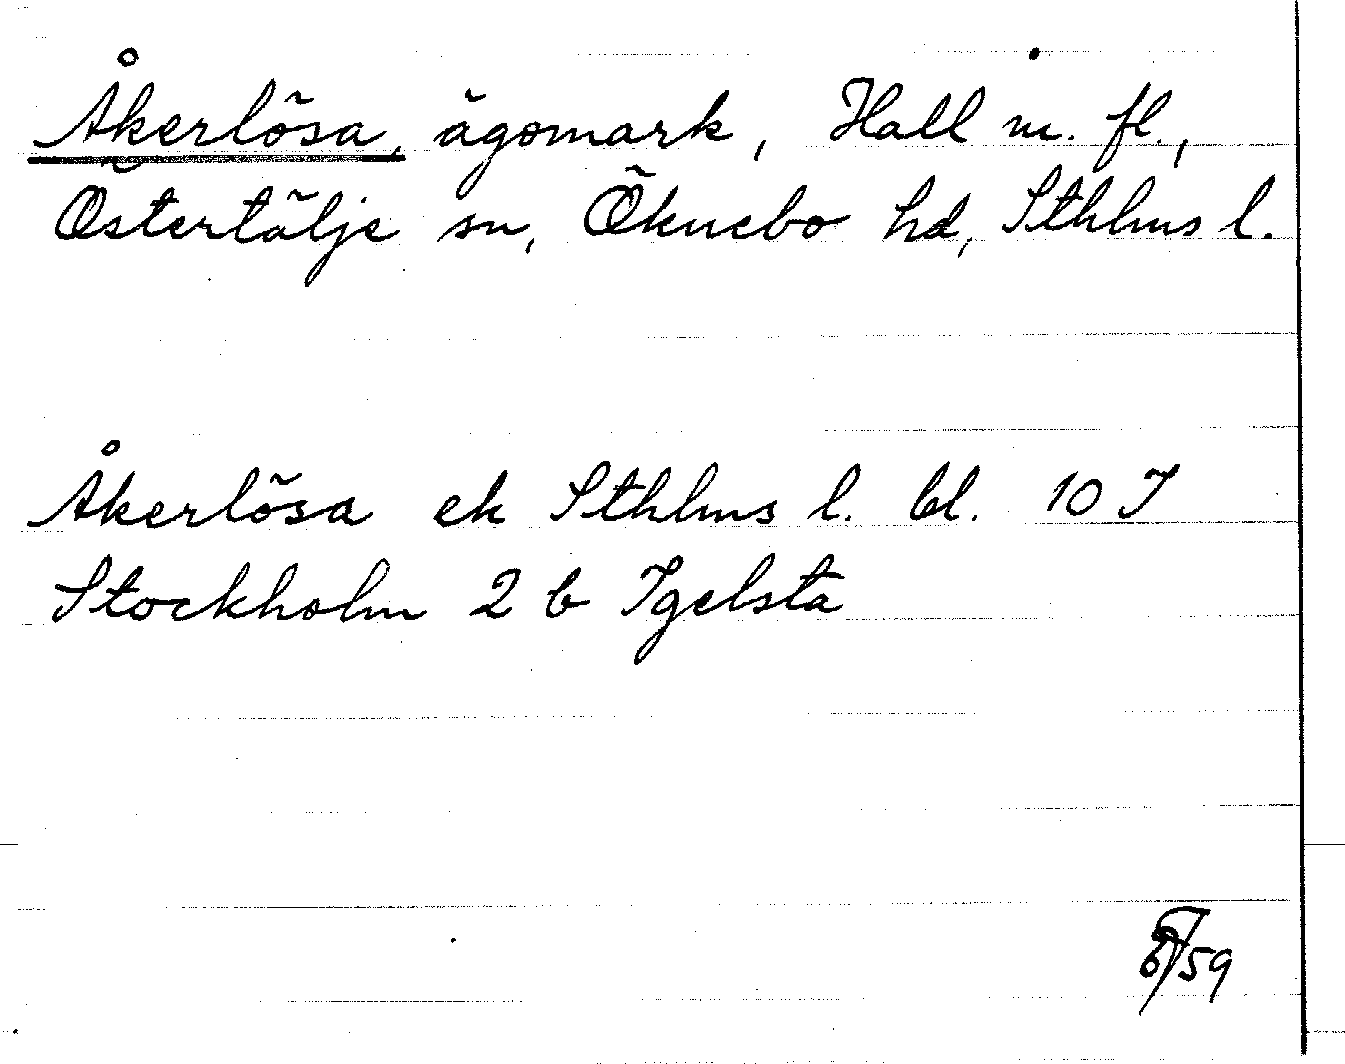 Åkerlösa, ägomark, Hall m. fl.,
Östertälje sn, Öknebo hd, Sthlms l.
Åkerlösa ek Sthlms l. bl. 10 I
Stockholm 2 b Igelsta
/59